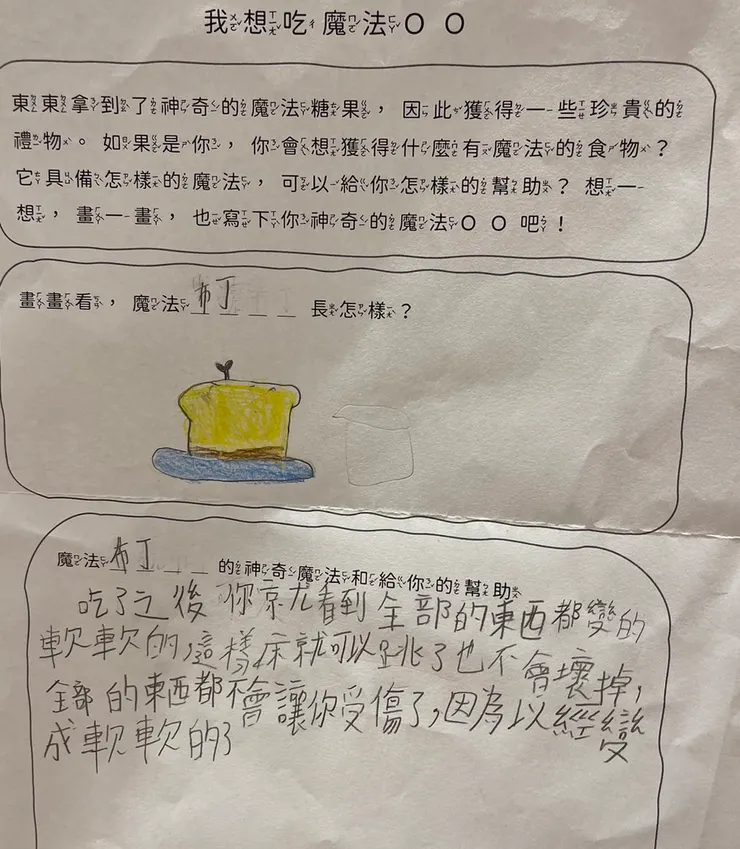 我想吃魔法ＯＯ
東東拿到了神奇的魔法糖果，因此獲得一些珍貴的
禮物。如果是你，你會想獲得什麼有魔法的食物？
它具備怎樣的魔法，可以給你怎樣的幫助？想一
想，畫一畫，也寫下你神奇的魔法ＯＯ吧！
畫畫看，魔法布丁長怎樣？
魔法布丁的神奇魔法和給你的幫助
吃了之後你京尤看到全部的東西都變的
軟軟的,這樣床就可以跳了也不會壞掉,
全部的東西都不會讓你受傷了,因為以經變
成軟軟的了